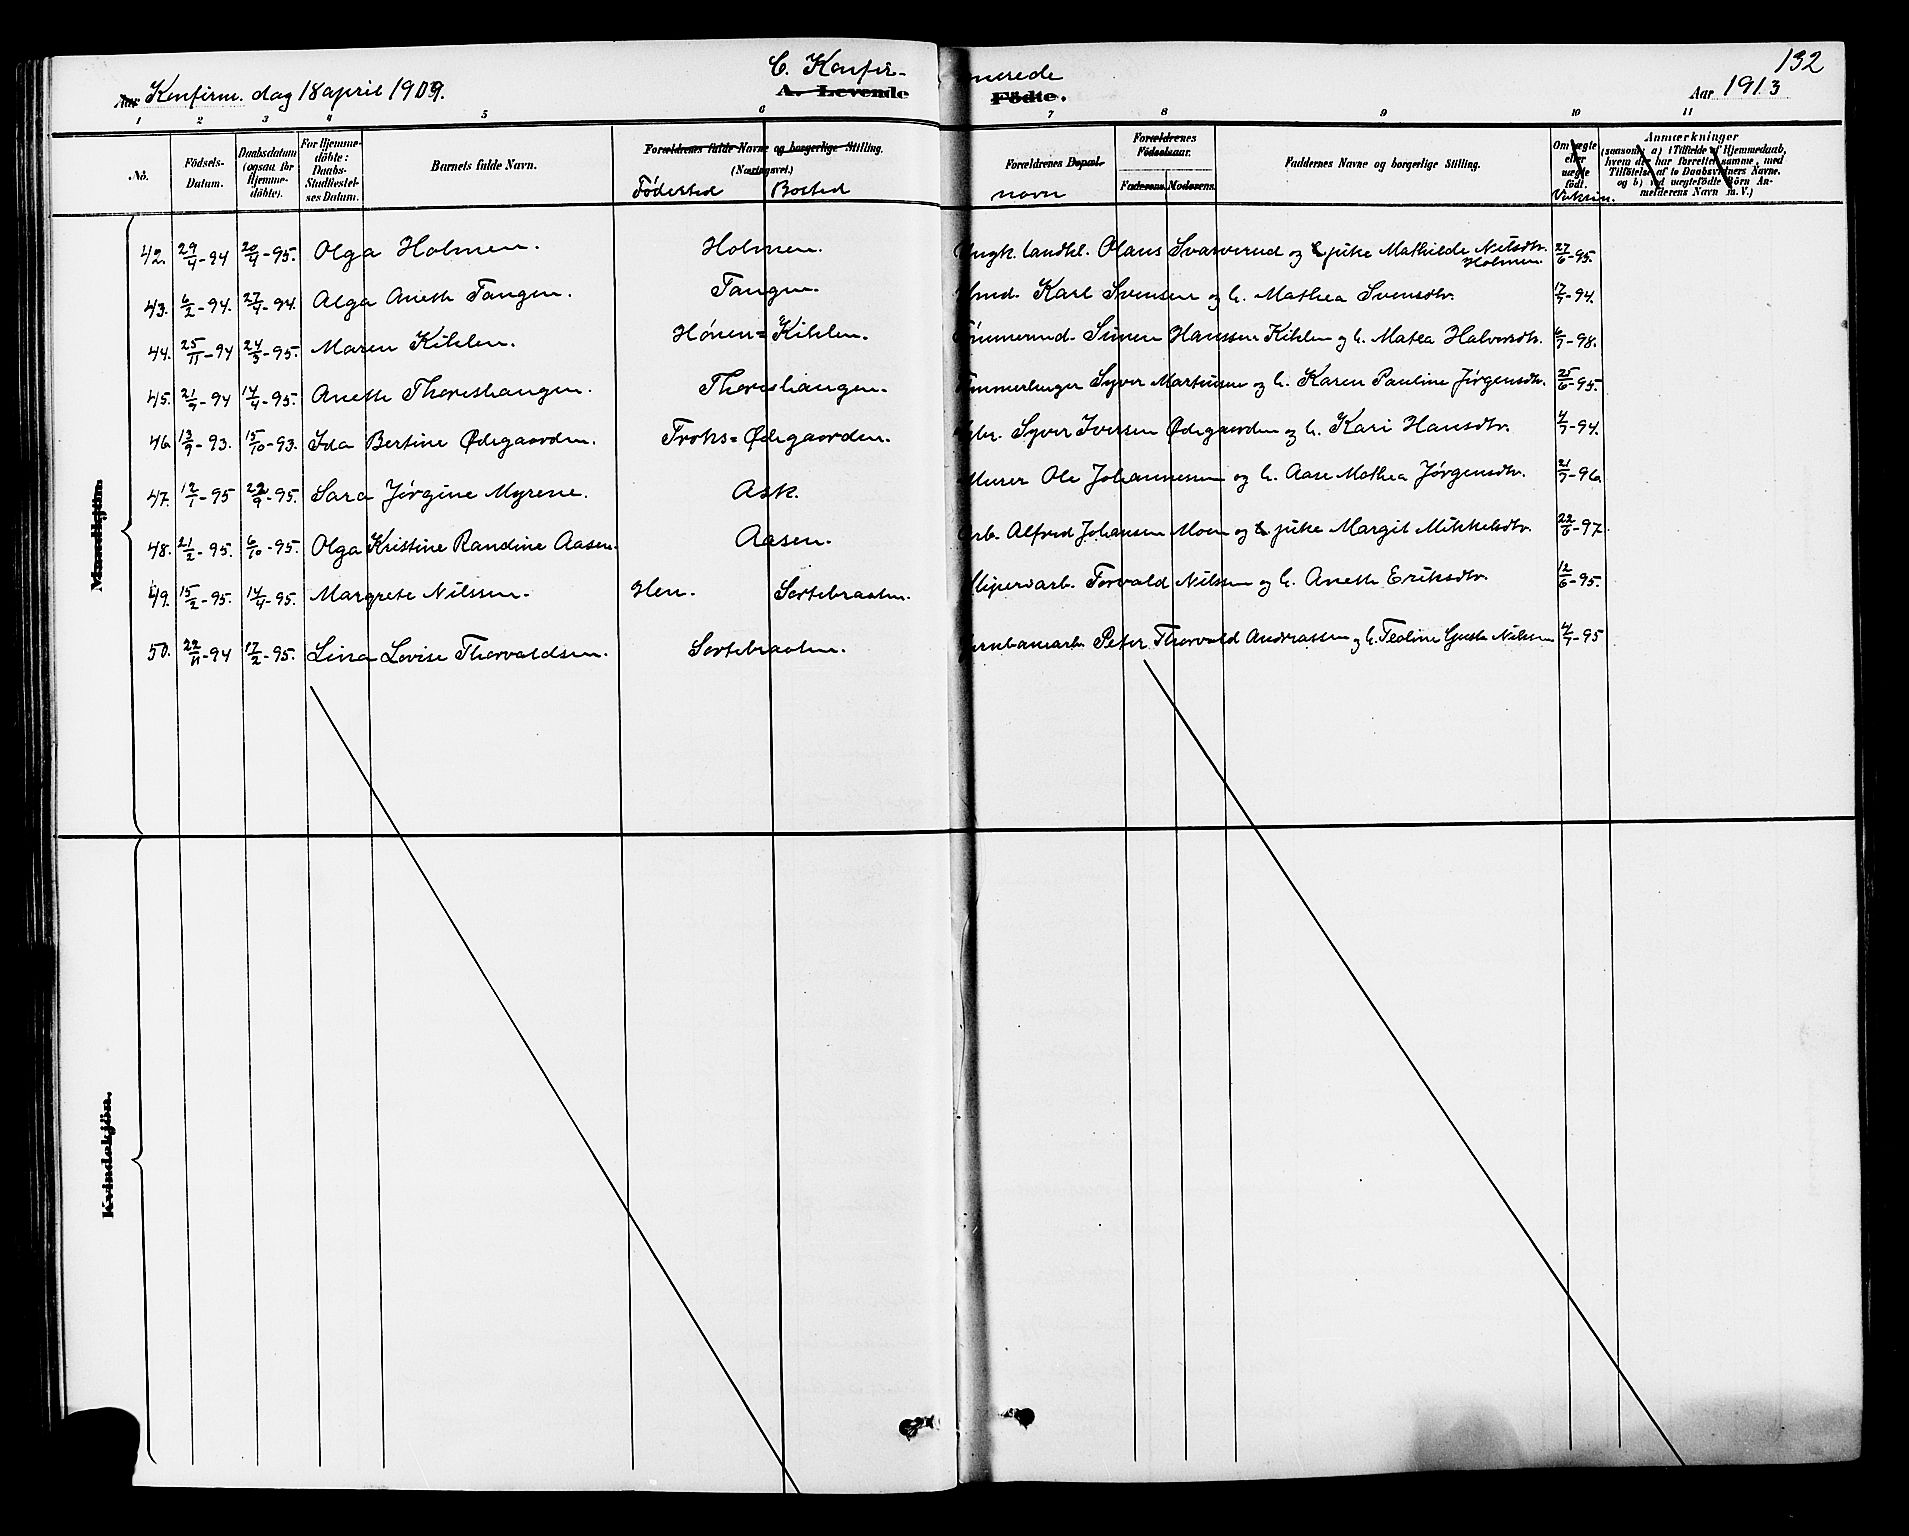 C. Konfir- merede 132
Aar Konfirm. dag 18 april 1909. A. Levende Födte. Aar 1913
1 2 3 4 5 6 7 8 9 10 11
No. Födsels-Datum. Daabsdatum (ogsaa for Hjemme-döbte). For Hjemme-döbte: Daabs-Stadfæstel-ses Datum. Barnets fulde Navn. Forældrenes fulde Navne og borgerlige Stilling. (Næringsvei.) Födested Bosted Forældrenes Bopæl. navn Forældrenes Födselsaar. Faderens. Moderens. Faddernes Navne og borgerlige Stilling. Om ægte eller uægte födt. Vaksin. Anmærkninger (saasom: a) i Tilfælde af Hjemmedaab, hvem der har forrettet samme, med Tilföielse af to Daabsvidners Navne, og b) ved uægtefödte Börn An-melderens Navn m. V.)
42. 29/4-94 20/4-95. Olga Holmen. Holmen. Ungk. landhl. Olaus Svarverud og pike Mathilde Nilsdtr. Holmen 27/6-95.
43. 6/2-94. 27/4-94. Alga Aneth Tangen. Tangen. Karl Svensen og h. Mathea Svensdtr. 17/7-94.
44. 25/11-94 24/3-95. Maren Kihlen. Hönen=Kihlen. Simen Hanssen Kihlen og h. Matea Halvorsdtr. 6/7-98.
45. 21/9-94 14/4-95. Aneth Thoreshaugen. Thoreshaugen. Syver Martinsen og h. Karen Pauline Jörgensdtr. 25/6-95.
46 13/9-93. 15/10-93. Ida Bertine Ødegaarden. Troks=Ødegaarden. Syver Iversen Ødegaarden og h. Kari Hansdtr. 4/7-94.
47. 12/1-95 22/9-95. Sara Jörgine Myrene. Ask. Murer Ole Johannesen og h. Aase Mathea Jörgensdtr. 21/7-96
48. 21/2-95. 6/10-95. Olga Kristine Randine Aasen. Aasen. Arb. Alfred Johansen Moen og pike Margit Mikkelsdtr. 22/6-97
49. 15/2-95. 14/4-95. Margrete Nilssen. Hen. Sortebraaten. Sliperiarb. Torvald Nilssen og h. Aneth Eriksdtr. 12/6-95.
50. 22/11-94 17/2-95. Lina Lovise Thorvaldsen. Sortebraaten. Jernbanearb. Peter Thorvald Andreassen og h. Teoline Gusta Nilssen 4/7-95
Mandkjön
Kvindekjön.